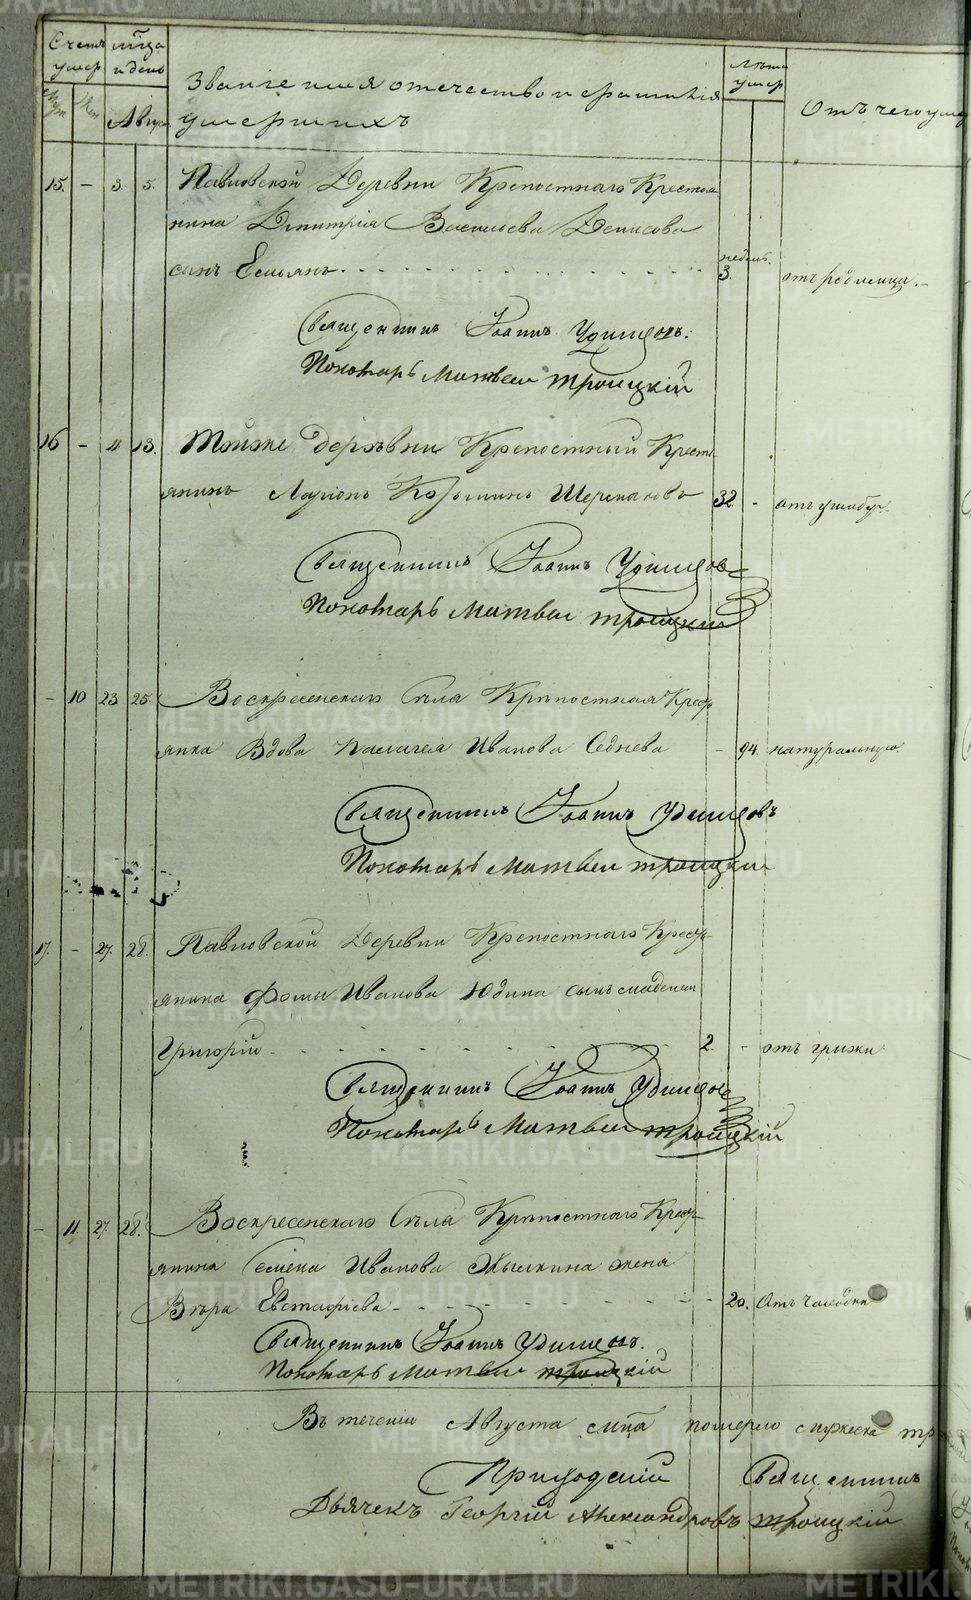 Счетъ умер
мца и день
Званіе имя отечество и фамилія
умершихъ
Лета умер
Отъ чего
Муж
Жен
Август
15. - 3. 5. Павловской Деревни Крепостнаго Крестья
нина Димитрія Васильева Денисова
сынъ Емельянъ недель 3. отъ родимца.
Священникъ Іоаннъ Удинцовъ.
Пономарь Матвеи Троицкій
16 - 11 13. Тойже деревни Крепостный Кресть
янинъ Ларіонъ Козьминъ 32 - отъ ушибу
Священникъ Іоаннъ Удинцовъ
Пономарь Матвеи Троицкіи
- 10 23 25 Воскресенскаго Села Крѣпостная Крест
янка Вдова Пелагея Иванова Седнева - 94. натуральную
Священникъ Іоаннъ Удинцовъ
Пономарь Матвеи Троицкіи
17. - 27. 28. Павловской Деревни Крепостнаго Крест
янина Фомы Иванова Юдина сынъ младенец
Григорій 2. - отъ грыжи
Священникъ Іоаннъ Удинцовъ
Пономарь Матвеи Троицкій
- 11. 27. 28. Воскресенскаго Села Крѣпостнаго Крест
янина Семена Иванова жена
Вѣра Евстафіева 20. Отъ чахотки
Священникъ Іоаннъ Удинцовъ.
Пономарь Матвеи Троицкій
Въ теченіи Августа м͠ца померло мужеска
Приходскій Священникъ
Дьячекъ Георгій Александровъ Троицкій
METRIKI.GASO-URAL.RU